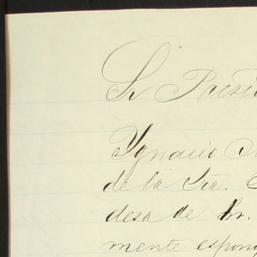 Sr Presi
Ygnacio
de la Cta.
desa de Dn.
mente espon